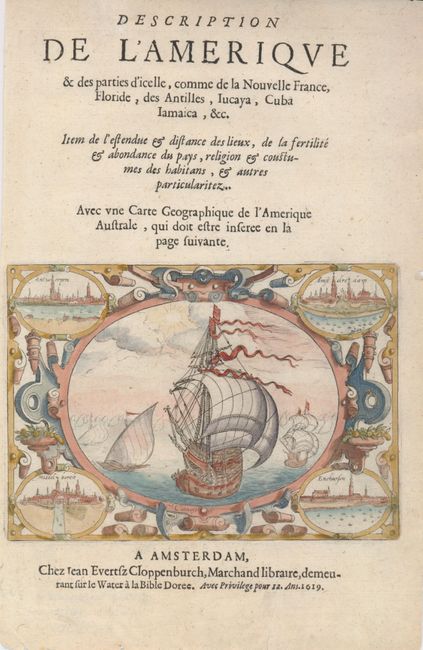 DESCRIPTION
DE L'AMERIQVE
& des parties d'icelle, comme de la Nouvelle France,
Floride, des Antilles, Iucaya, Cuba
Iamaica, &c.
Item de l'estendue & distance des lieux, de la fertilité
& abondance du pays, religion & coustu-
mes des habitans, & autres
particularitez.
Avec vne Carte Geographique de l'Amerique
Australe, qui doit estre inseree en la
page suivante.
Antwerpen
Amstelredam
Middelborch
Enchuysen
A AMSTERDAM,
Chez Iean Evertsz Cloppenburch, Marchand libraire, demeu-
rant sur le Water à la Bible Doree. Avec Privilege pour 12. Ans. 1619.